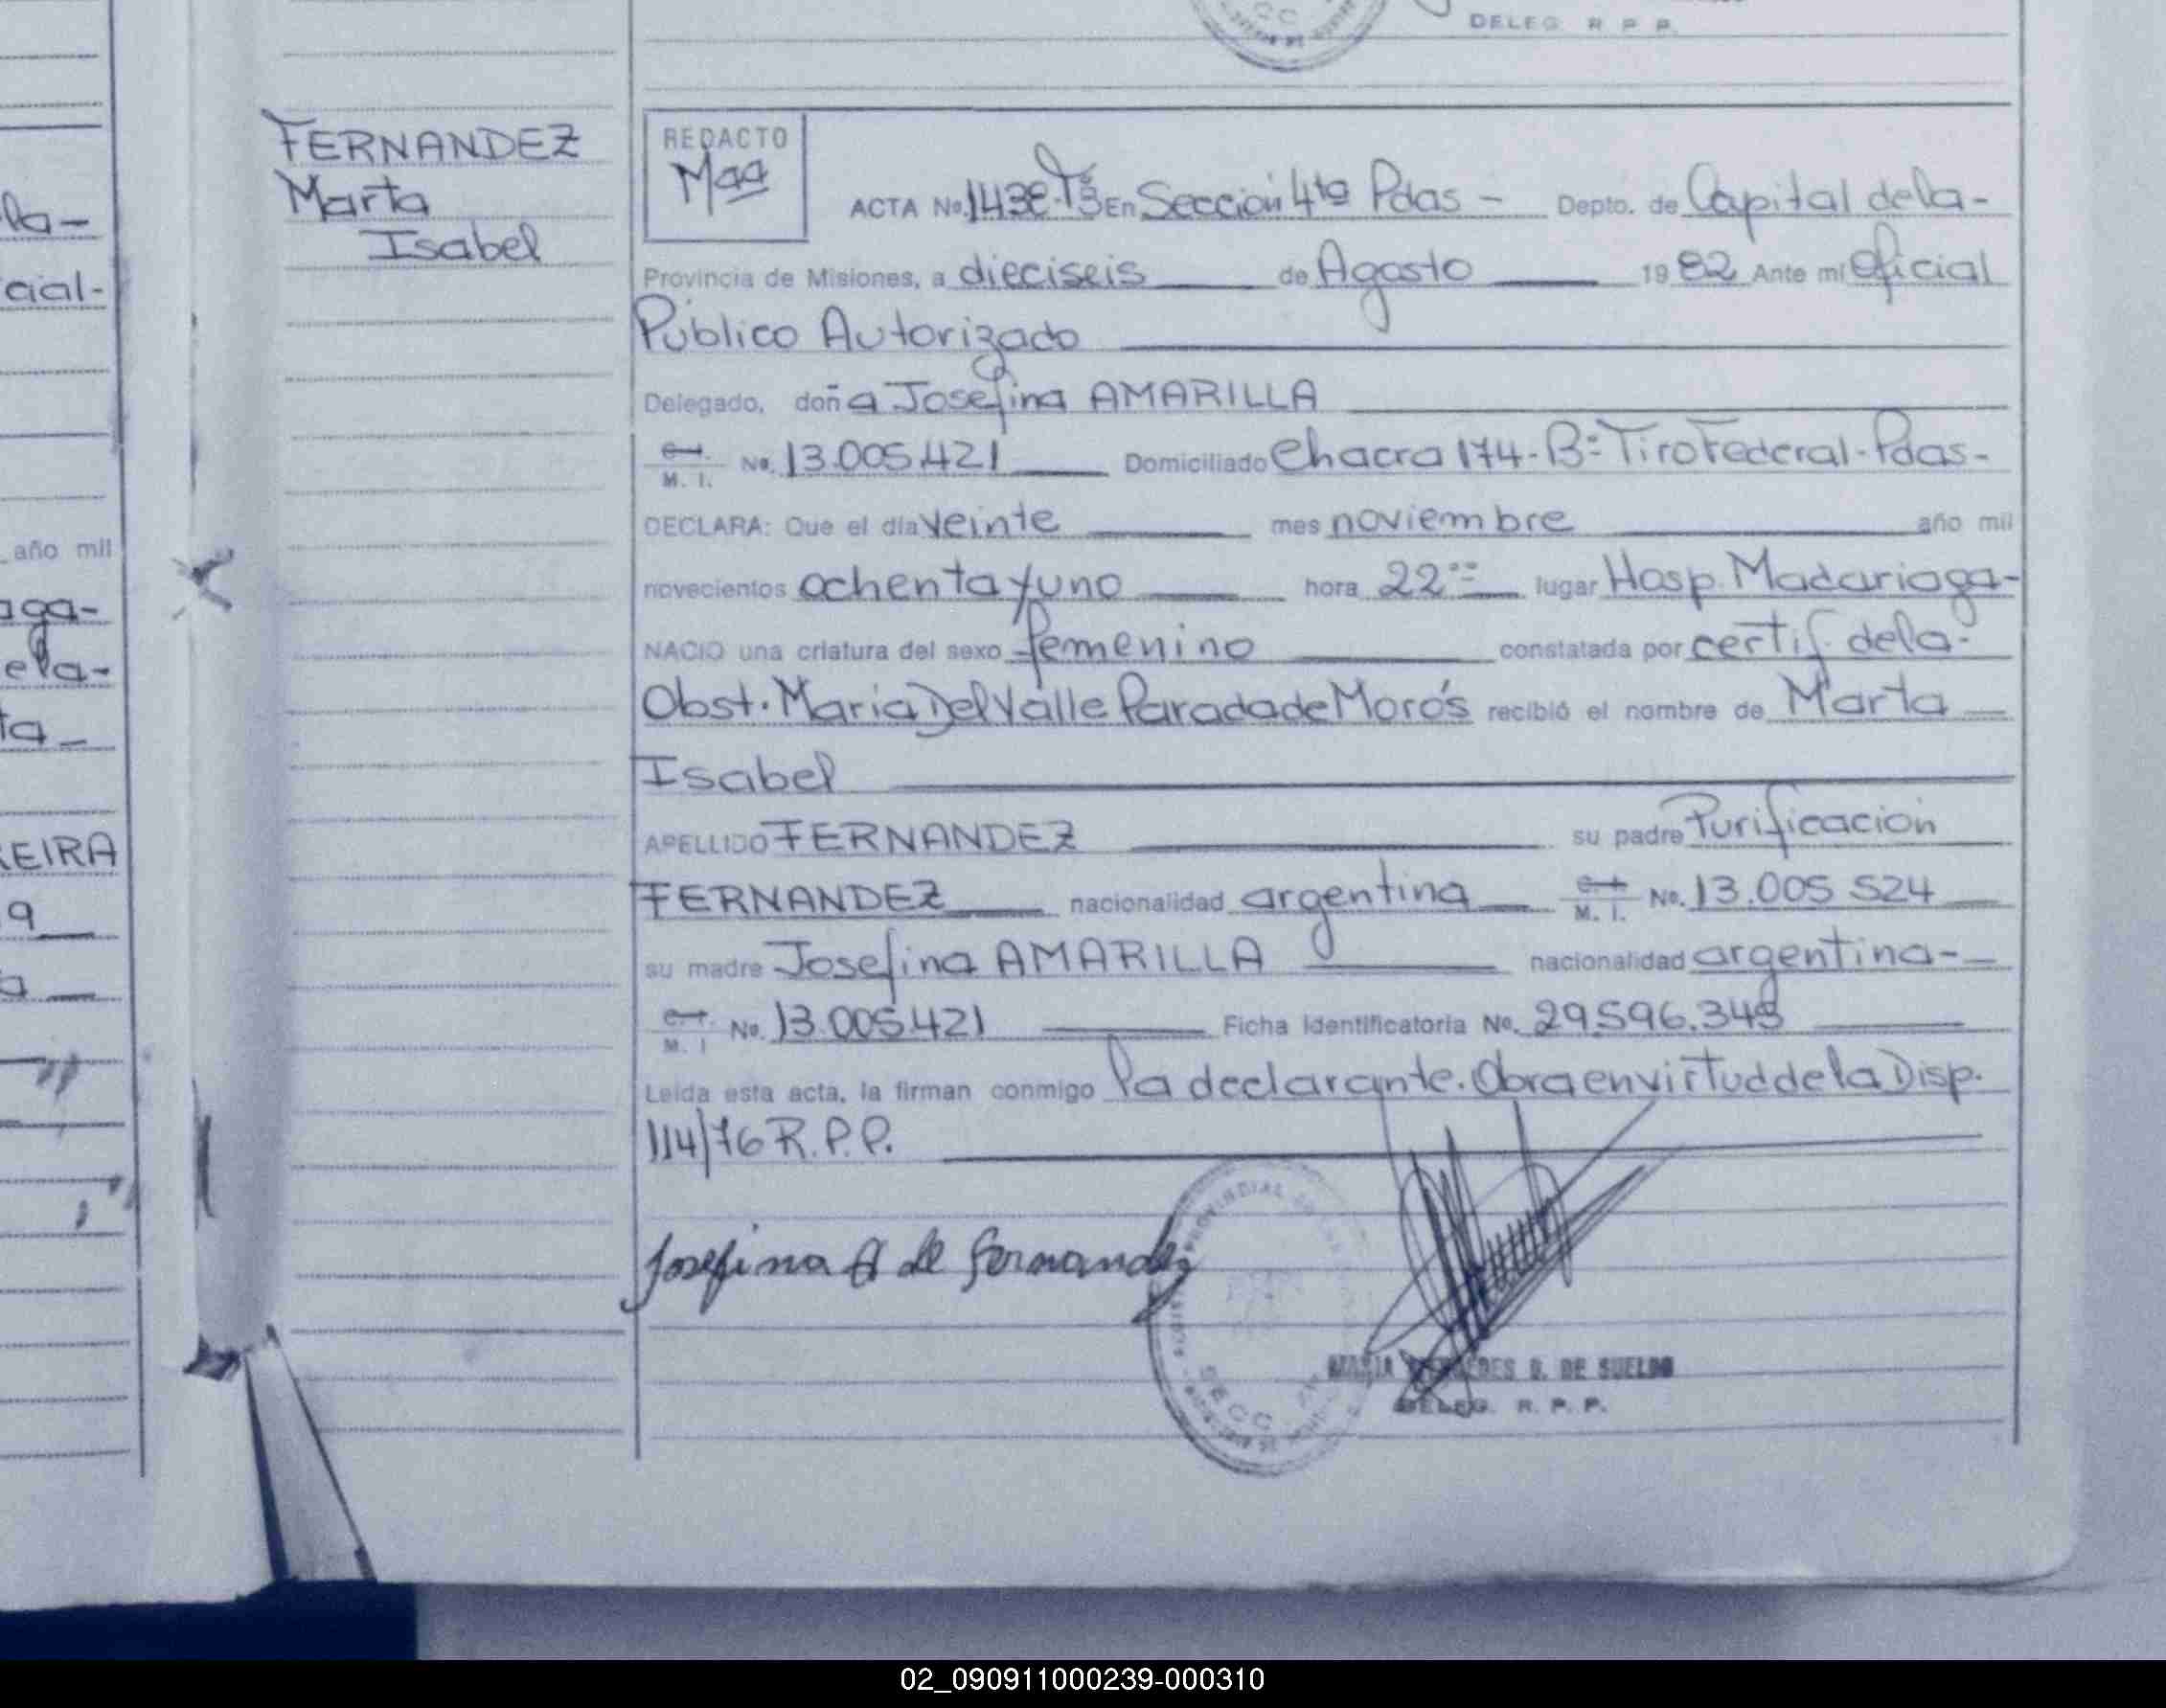 DELEG R P P.
la-
cial-
año mil
aga-
ela-
ta
REIRA
9
a
FERNANDEZ
Marta
Isabel
REDACTO
Maa
ACTA No. 1438-Tº3 En Sección 4ta Pdas - Depto. de Capital de la-
Provincia de Misiones, a dieciseis de Agosto 1982 Ante mi Oficial
Público Autorizado
Delegado, doña Josefina AMARILLA
M. I. No. 13.005.421 Domiciliado Chacra 174-Bº Tiro Federal-Pdas-
DECLARA: Que el día veinte mes noviembre año mil
novecientos ochenta y uno hora 22 lugar Hosp. Madariaga-
NACIO una criatura del sexo femenino constatada por certif. de la-
Obst. Maria Del Valle Parada de Morós recibió el nombre de Marta
Isabel
APELLIDO FERNANDEZ su padre Purificacion
FERNANDEZ nacionalidad argentina M. I. No. 13.005 524
su madre Josefina AMARILLA nacionalidad argentina-
M. I No. 13.005.421 Ficha Identificatoria No. 29.596.34
Leída esta acta, la firman conmigo la declarante. Obra en virtud de la Disp.
114/76 R.P.P.
Josefina A de Fernandez
MARIA DE SUELDO
DELEG. R. P. P.
02_090911000239-000310